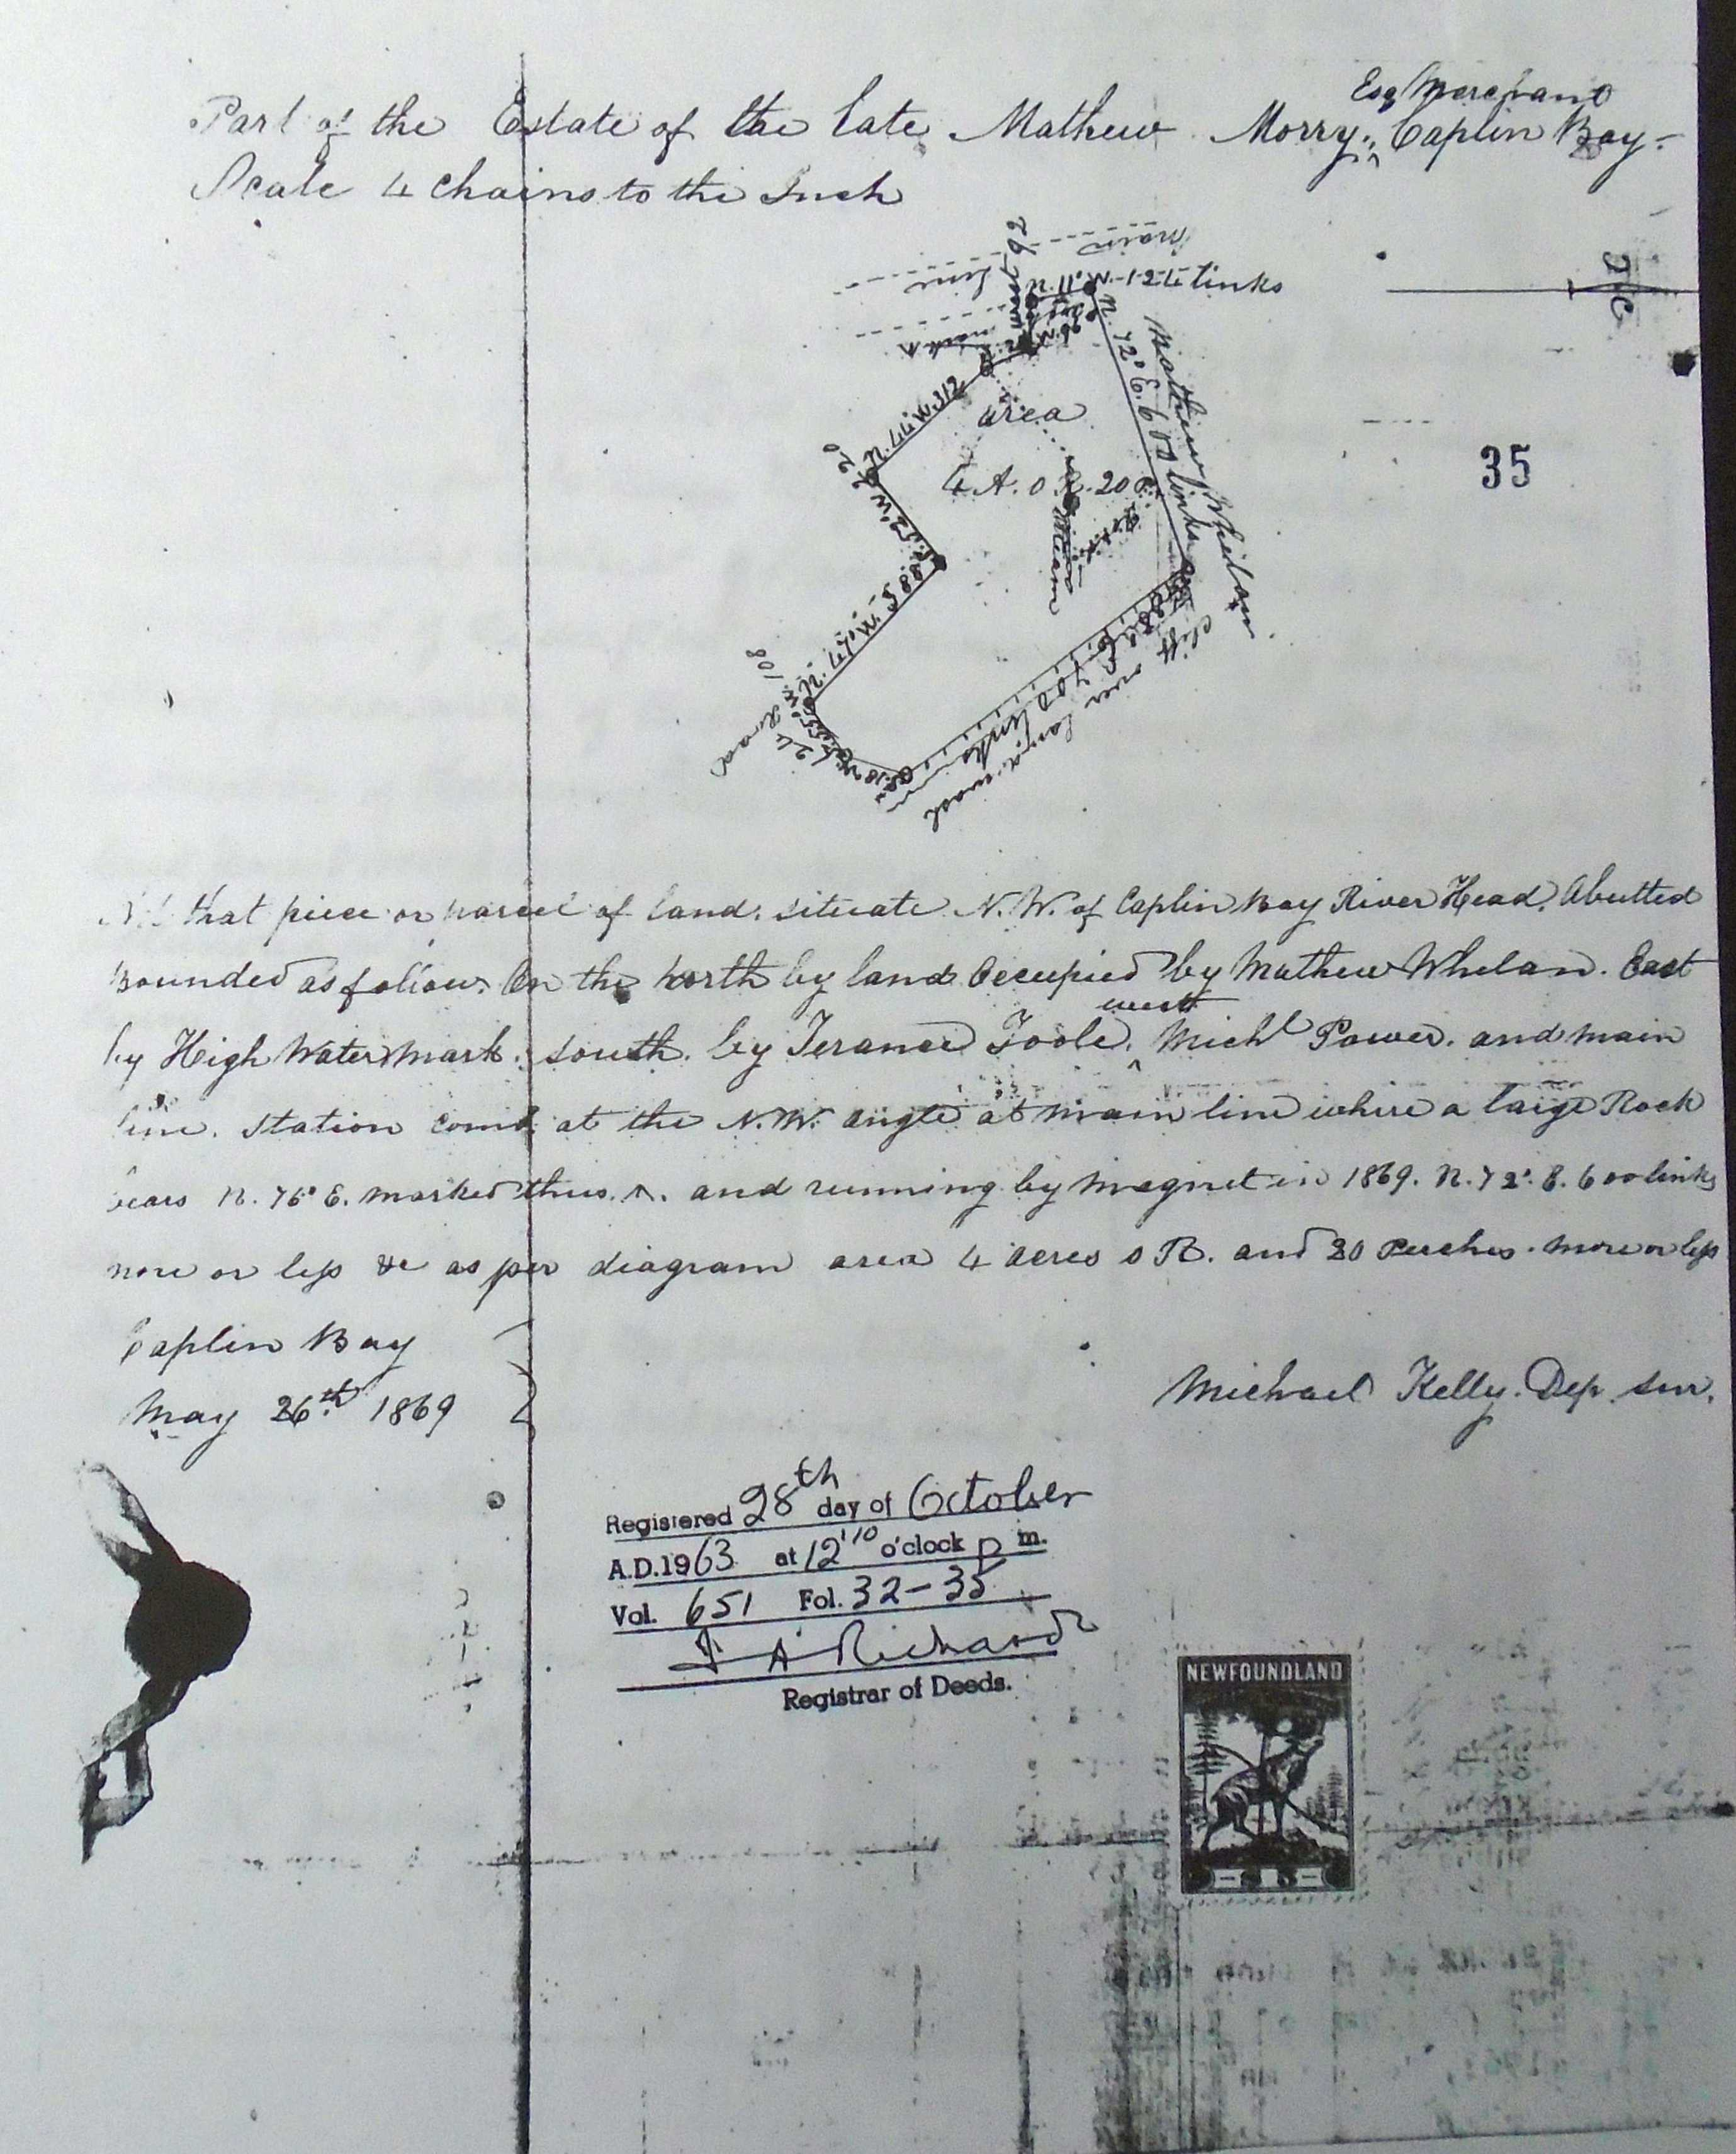 Esq Merchant
Part of the Estate of the late Mathew Morry, Caplin Bay.
Scale 4 chains to the Inch
main
line
N. 11 W. 124 links
N. 72° E. 600 links
Mathew Whelan
N. 44 W 312
area
4 A. 0 R. 20 P.
35
S. 52° W
N. 47° W. 388
108
Road
400 links
cliff over
All that piece or parcel of land. situate N.W. of Caplin Bay River Head. Abutted
Bounded as follow. On the North by land Occupied by Mathew Whelan. East
by High Water Mark. south. by Terance Toole. west Michl Power. and main
line. Station comd at the N.W. angle at main line where a large Rock
bears N. 76° E. marked thus. ^. and running by Magnet in 1869. N. 72°. E. 600 links
more or less &c as per diagram area 4 acres 0 R. and 20 Perches. more or less
Caplin Bay
May 26th 1869
Michael Kelly. Dep. Sur.
Registered 28th day of October
A.D.1963 at 12'10 o'clock p m.
Vol. 651 Fol. 32-35
Richards
Registrar of Deeds.
NEWFOUNDLAND